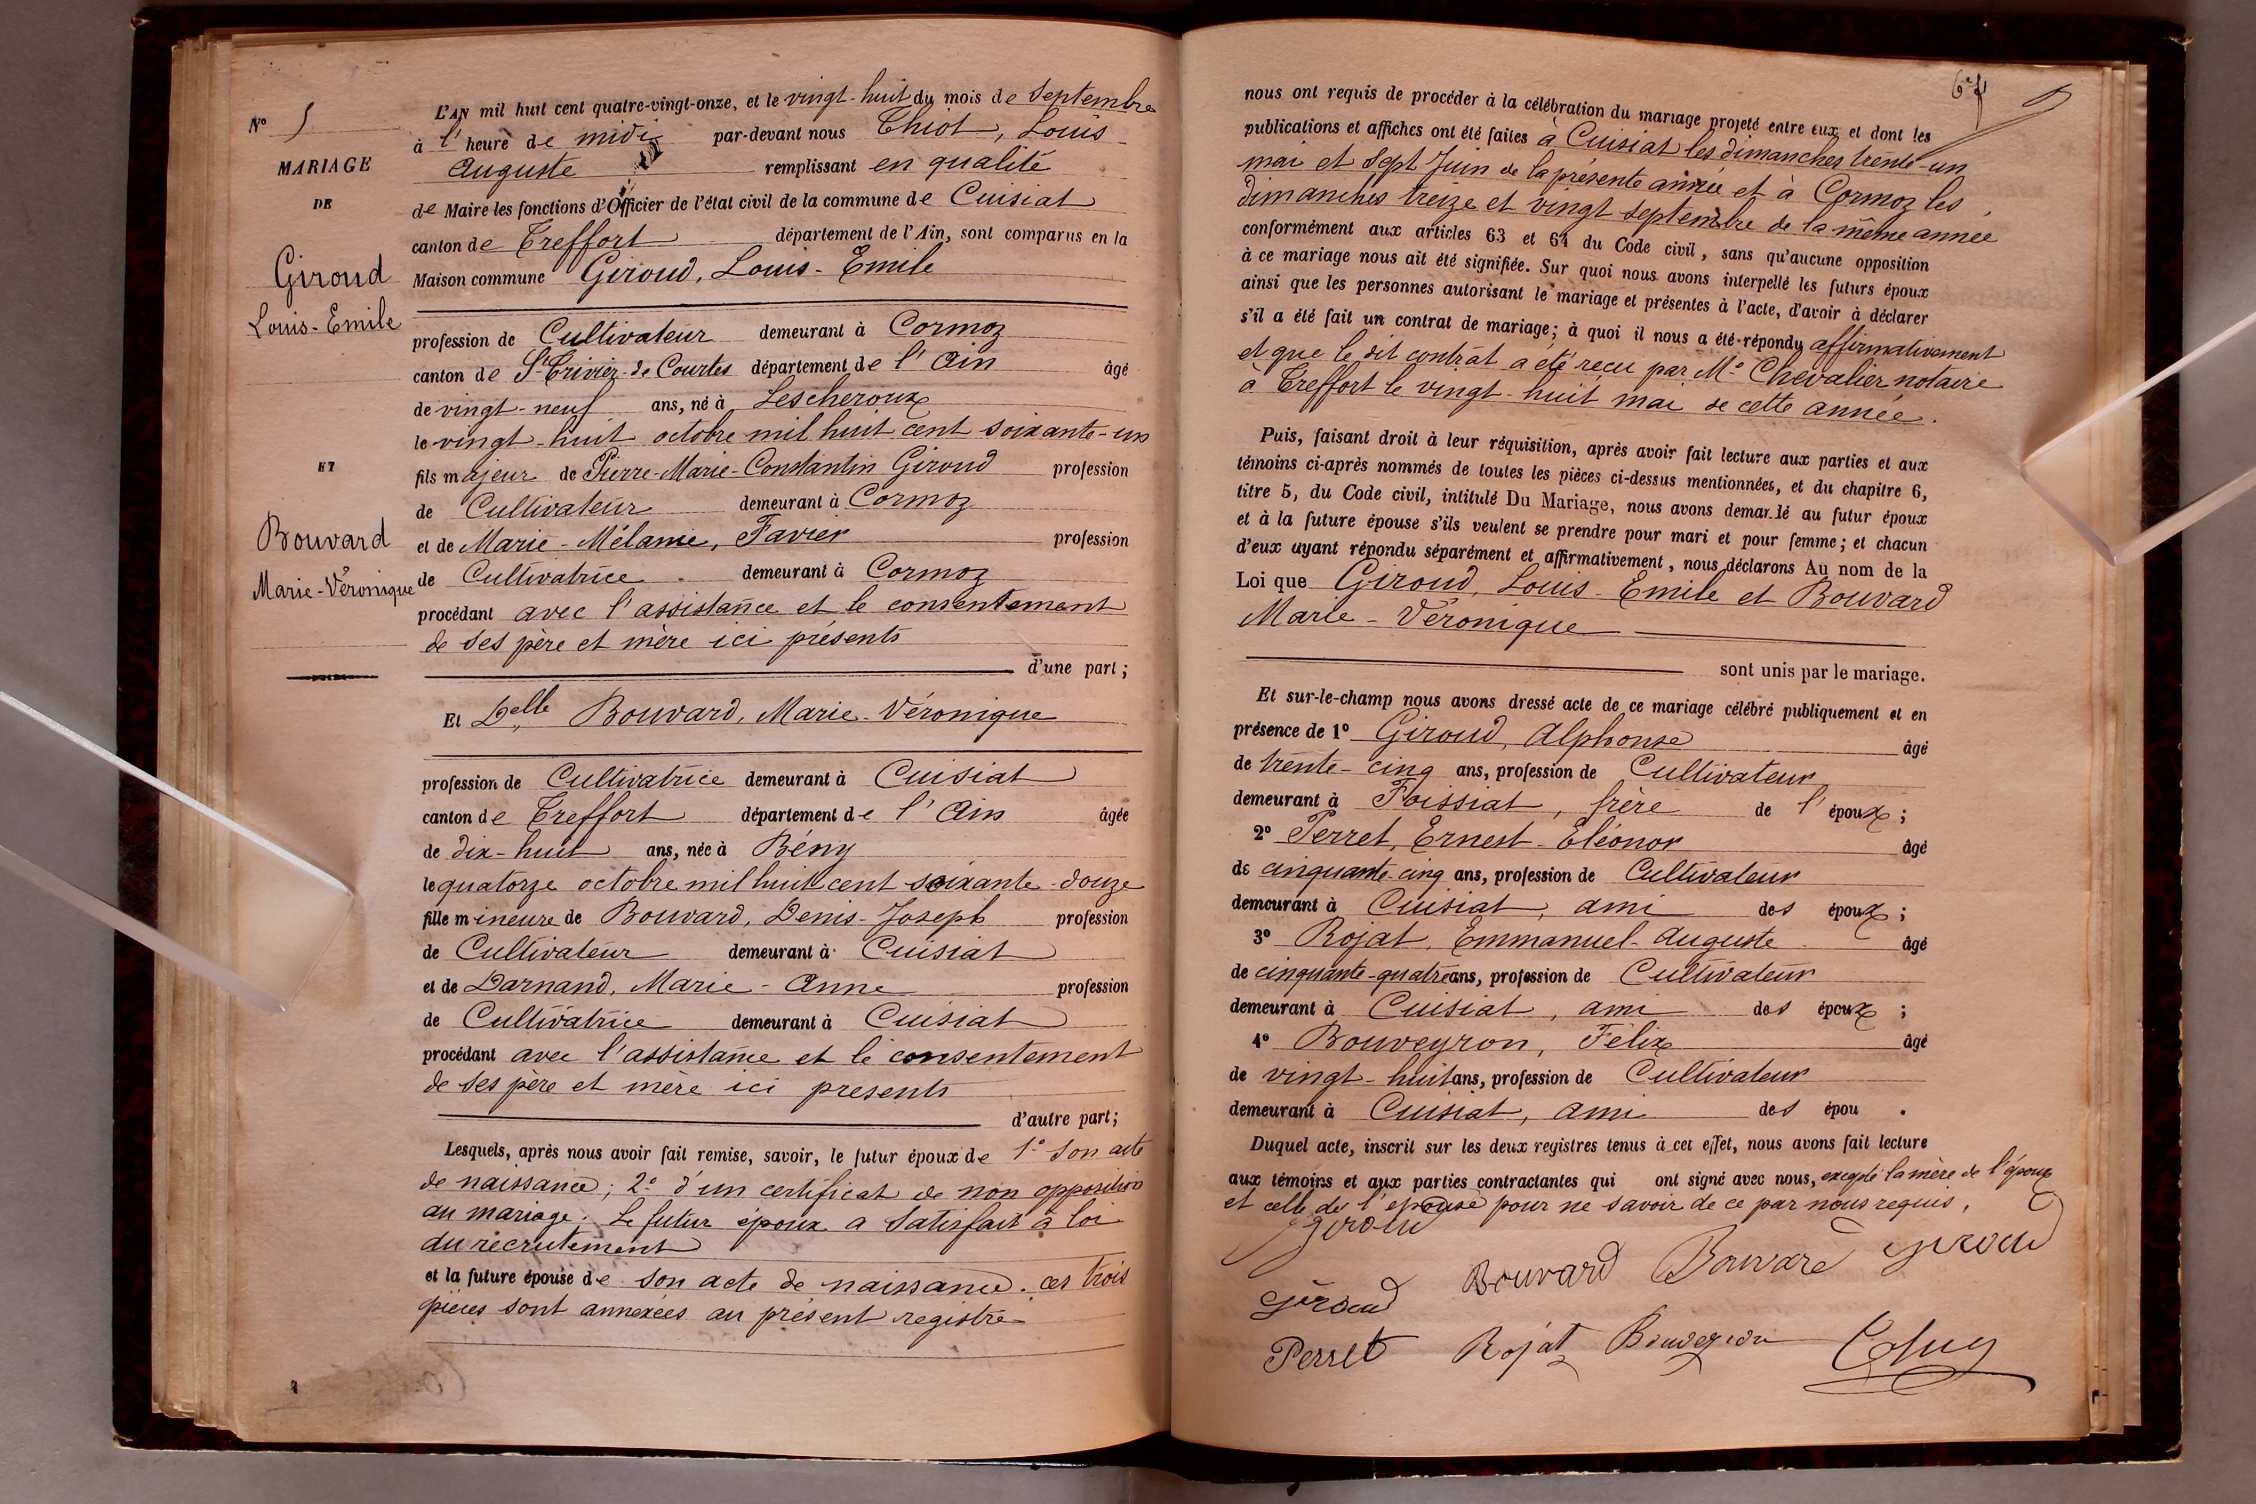 N° 5
MARIAGE
DE
Giroud
Louis-Emile
ET
Bouvard
Marie-Véronique
L'AN mil huit cent quatre-vingt-onze, et le vingt-huit du mois de Septembre
à l'heure de midi par-devant nous Thiot, Louis
Auguste remplissant en qualité
de Maire les fonctions d'Officier de l'état civil de la commune de Cuisiat
canton de Treffort département de l'Ain, sont comparus en la
Maison commune Giroud, Louis-Emile
profession de Cultivateur demeurant à Cormoz
canton de St Trivier-de Courtes département de l'Ain âgé
de vingt-neuf ans, né à Lescheroux
le vingt-huit octobre mil huit cent soixante-un
fils majeur de Pierre-Marie-Constantin Giroud profession
de Cultivateur demeurant à Cormoz
et de Marie-Mélanie, Favier profession
de Cultivatrice demeurant à Cormoz
procédant avec l'assistance et le consentement
de ses père et mère ici présents
d'une part;
Et Delle Bouvard, Marie-Véronique
profession de Cultivatrice demeurant à Cuisiat
canton de Treffort département de l'Ain âgée
de dix-huit ans, née à Bény
le quatorze octobre mil huit cent soixante-douze
fille mineure de Bouvard, Denis-Joseph profession
de Cultivateur demeurant à Cuisiat
et de Darnand, Marie-Anne profession
de Cultivatrice demeurant à Cuisiat
procédant avec l'assistance et le consentement
de ses père et mère ici presents
d'autre part;
Lesquels, après nous avoir fait remise, savoir, le futur époux de 1° Son acte
de naissance; 2° d'un certificat de non opposition
au mariage. Le futur époux a satisfait à loi
du recrutement
et la future épouse de son acte de naissance. ces trois
pièces sont annexées au présent registre
nous ont requis de procéder à la célébration du mariage projeté entre eux et dont les
publications et affiches ont été faites à Cuisiat les dimanches trente-un
mai et sept Juin de la présente année et à Cormoz les
dimanches treize et vingt septembre de la même année
conformément aux articles 63 et 64 du Code civil, sans qu'aucune opposition
à ce mariage nous ait été signifiée. Sur quoi nous avons interpellé les futurs époux
ainsi que les personnes autorisant le mariage et présentes à l'acte, d'avoir à déclarer
s'il a été fait un contrat de mariage; à quoi il nous a été répondu affirmativement
et que le dit contrat a été reçu par Me Chevalier notaire
à Treffort le vingt-huit mai de cette année.
Puis, faisant droit à leur réquisition, après avoir fait lecture aux parties et aux
témoins ci-après nommés de toutes les pièces ci-dessus mentionnées, et du chapitre 6,
titre 5, du Code civil, intitulé Du Mariage, nous avons demandé au futur époux
et à la future épouse s'ils veulent se prendre pour mari et pour femme; et chacun
d'eux ayant répondu séparément et affirmativement, nous déclarons Au nom de la
Loi que Giroud, Louis-Emile et Bouvard
Marie-Véronique
sont unis par le mariage.
Et sur-le-champ nous avons dressé acte de ce mariage célébré publiquement et en
présence de 1° Giroud, Alphonse âgé
de trente-cinq ans, profession de Cultivateur
demeurant à Foissiat, frère de l'époux;
2° Perret, Ernest-Eléonor âgé
de cinquante-cinq ans, profession de Cultivateur
demeurant à Cuisiat, ami des époux;
3° Rojat, Emmanuel-Auguste âgé
de cinquante-quatre ans, profession de Cultivateur
demeurant à Cuisiat, ami des époux;
4° Bouveyron, Félix âgé
de vingt-huit ans, profession de Cultivateur
demeurant à Cuisiat, ami des épou .
Duquel acte, inscrit sur les deux registres tenus à cet effet, nous avons fait lecture
aux témoins et aux parties contractantes qui ont signé avec nous, excepté la mère de l'époux
et celle de l'épouse pour ne savoir de ce par nous requis.
Giroud
Bouvard Bouvard Giroud
Giroud
Perret Rojat Bouveyron